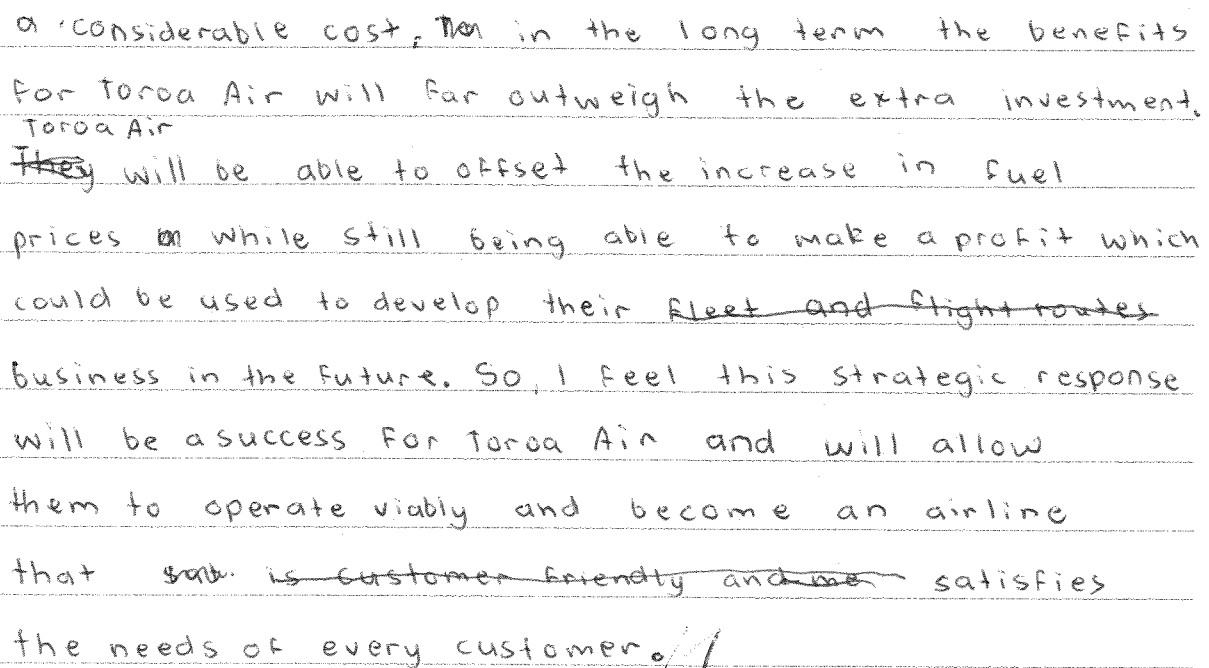 a considerable cost, in the long term the benefits
for Toroa Air will far outweigh the extra investment.
Toroa Air
They will be able to offset the increase in fuel
prices while still being able to make a profit which
could be used to develop their fleet and flight routes
business in the future. So, I feel this strategic response
will be a success for Toroa Air and will allow
them to operate viably and become an airline
that is customer friendly and me satisfies
the needs of every customer.